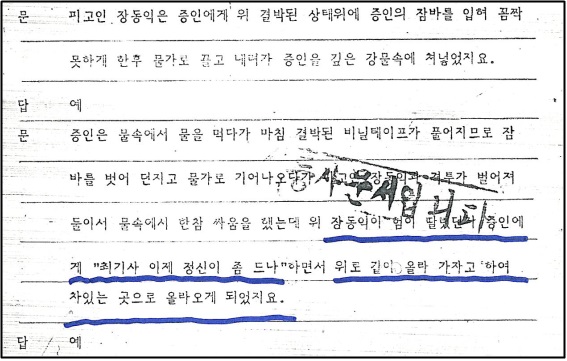 문 피고인 장동익은 증인에게 위 결박된 상태위에 증인의 잠바를 입혀 꼼짝
못하게 한후 물가로 끌고 내려가 증인을 깊은 강물속에 쳐넣었지요.
답 예
문 증인은 물속에서 물을 먹다가 마침 결박된 비닐테이프가 풀어지므로 잠
바를 벗어 던지고 물가로 기어나오다가 피고인 장동익과 격투가 벌어져
둘이서 물속에서 한참 싸움을 했는데 위 장동익이 힘이 딸렸던지 증인에
게 "최기사 이제 정신이 좀 드나"하면서 위로 같이 올라 가자고 하여
차있는 곳으로 올라오게 되었지요.
답 예